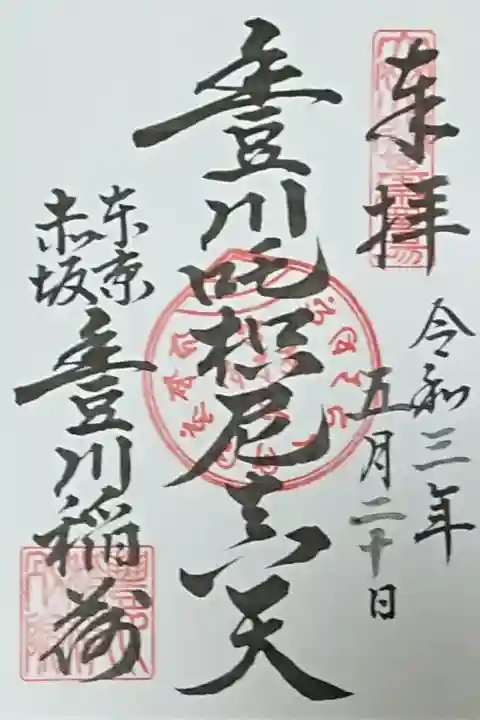 奉拝
令和三年
五月二十日
豊川吒枳尼真天
東京
赤坂
豊川稲荷